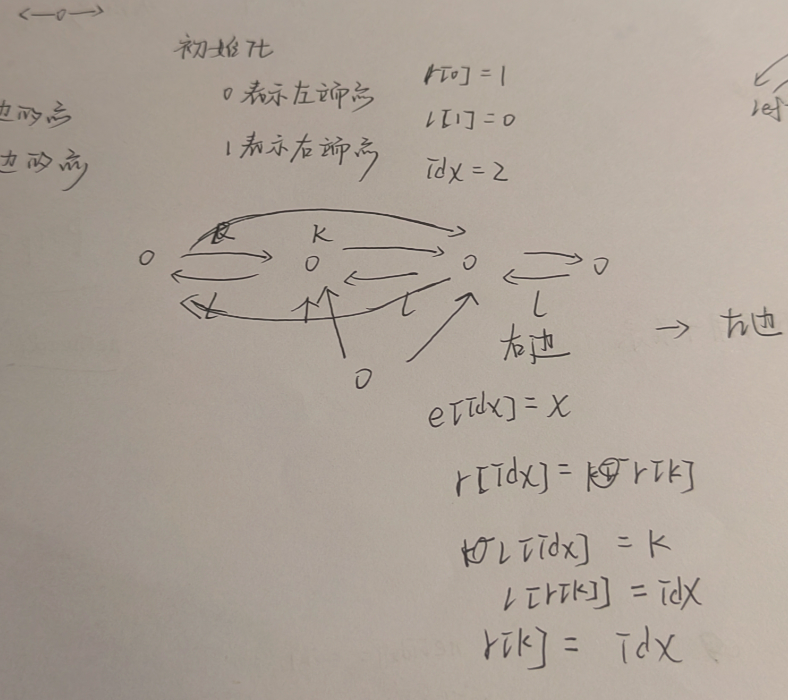 初始化
0表示左端点 r[0] = 1
1表示右端点 l[1] = 0
idx = 2
边的点
边的点
k
l l l
右边 → 右边
e[idx] = x
r[idx] = r[k]
l[idx] = k
l[r[k]] = idx
r[k] = idx